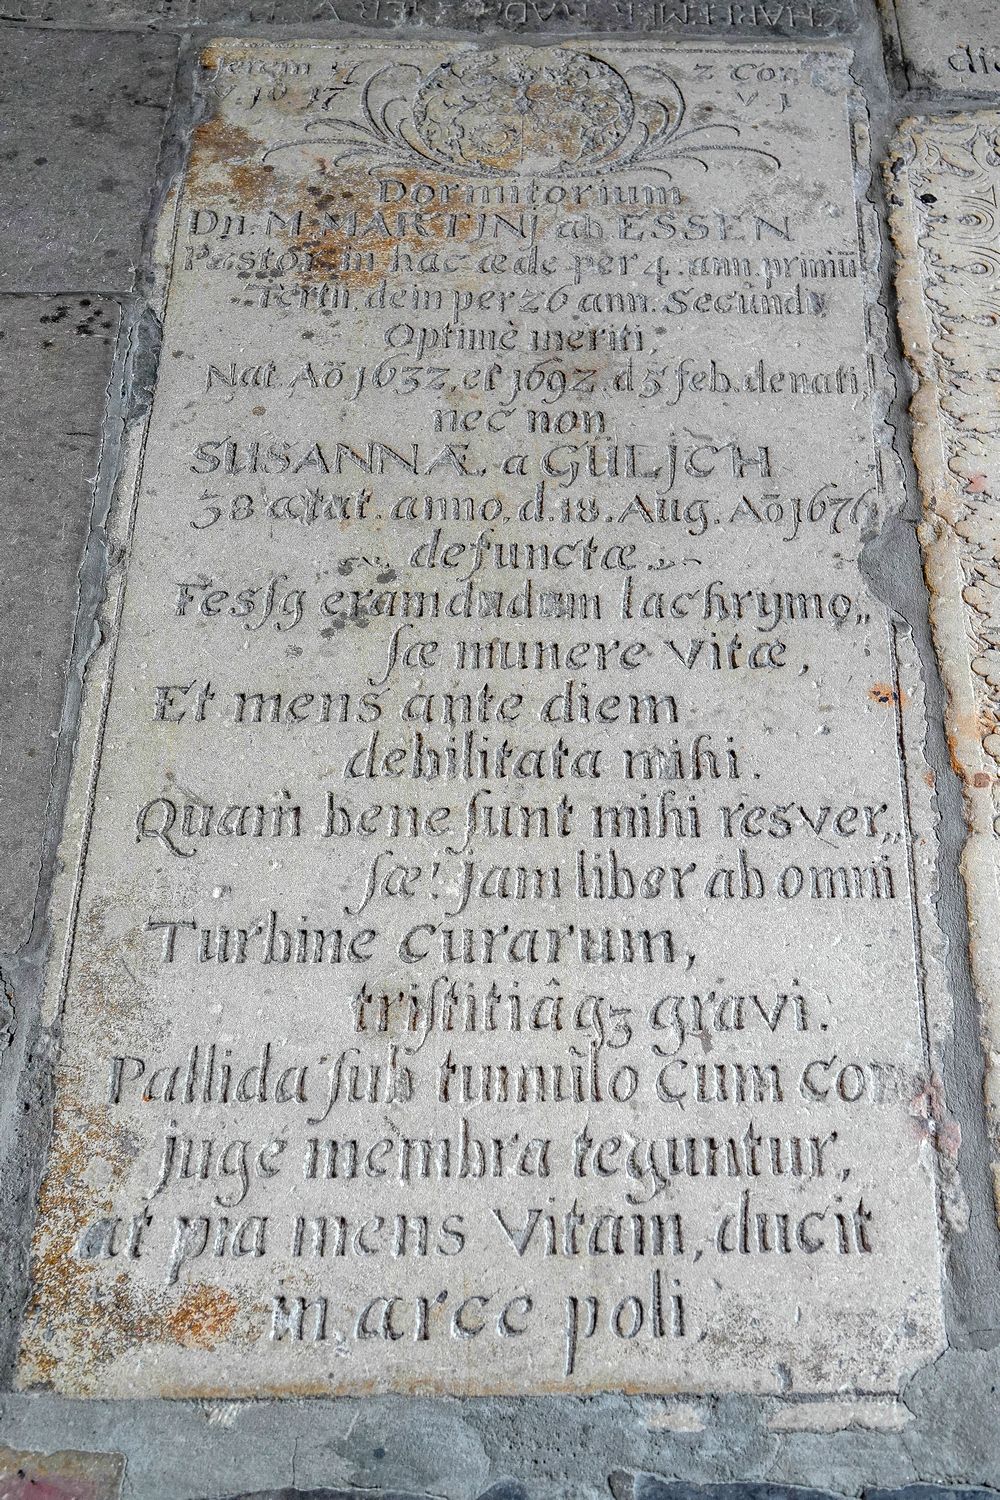 Jerem 17 2 Cor
v. 16 17 v 1
Dormitorium
Dn. M. MARTINJ ab ESSEN
Pastor. in hac æde per 4. ann. primū
Tertii, dein per 26 ann. Secundi
Optimè meriti,
Nat. Aō 1632, et 1692. d 5 feb. denati,
nec non
SUSANNÆ. a GÜLJCH
38 ætat. anno, d. 18. Aug. Aō 1676
defunctæ
Fessꝗ eram dudum lachrymo,,
sæ munere vitæ,
Et mens ante diem
debilitata mihi.
Quam bene sunt mihi res ver,,
sæ! Jam liber ab omni
Turbine Curarum,
tristitiâqꝫ gravi.
Pallida sub tumulo Cum Con
juge membra teguntur,
at pia mens Vitam, ducit
in arce poli,